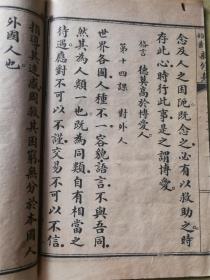 念及人之困阨既念之必有以救助之時
存此心時行此事是之謂博愛
格言 德莫高於博愛人
第十四課 對外人
世界各國人種不一容貌語言不與吾同
然其為人類一也既為同類自有相當之
待遇應對不可以不謹交易不可以不信
指導其迷藏國救其困窮無分於本國人
外國人也